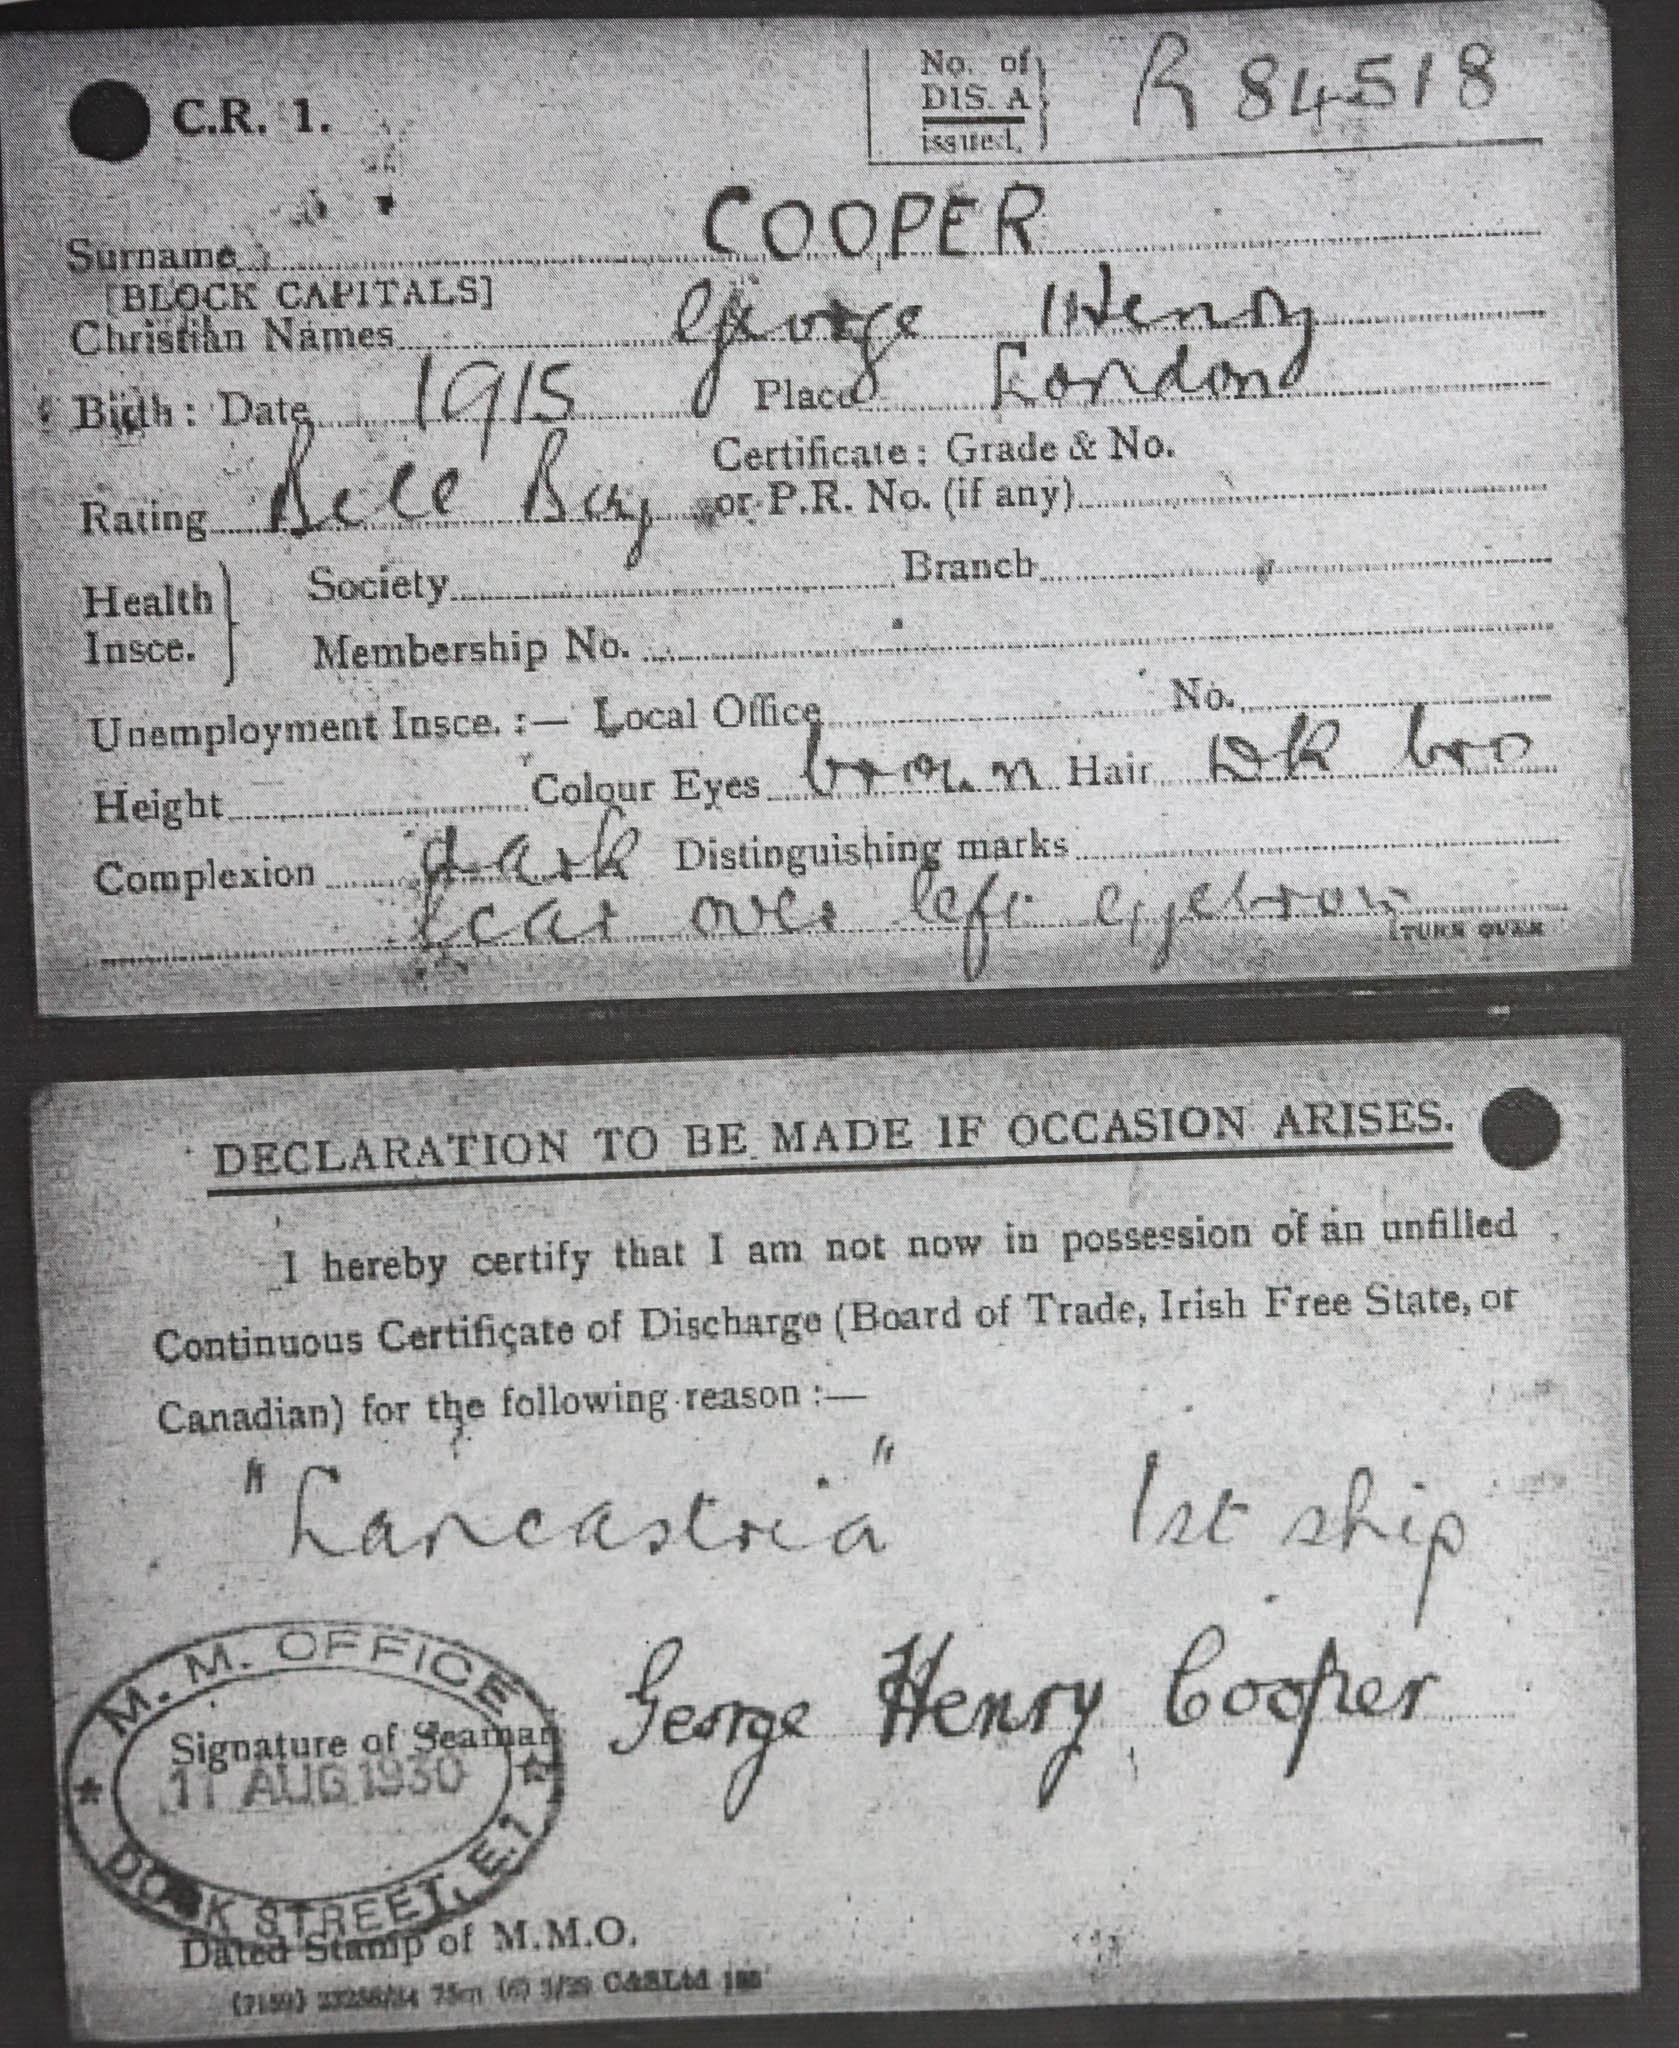 C.R. 1.
No. of DIS. A issued. R 84518
Surname COOPER
[BLOCK CAPITALS]
Christian Names George Henry
Birth: Date 1915 Place London
Certificate: Grade & No.
Rating Bell Boy or P.R. No. (if any)
Health Insce. Society Branch
Membership No.
Unemployment Insce. :— Local Office No.
Height Colour Eyes brown Hair DK bro
Complexion dark Distinguishing marks
scar over left eyebrow
[TURN OVER
DECLARATION TO BE MADE IF OCCASION ARISES.
I hereby certify that I am not now in possession of an unfilled
Continuous Certificate of Discharge (Board of Trade, Irish Free State, or
Canadian) for the following reason :—
"Lancastria" 1st ship
M. M. OFFICE
Signature of Seaman George Henry Cooper
11 AUG 1930
DOCK STREET, E1
Dated Stamp of M.M.O.
75m (6) 3/29